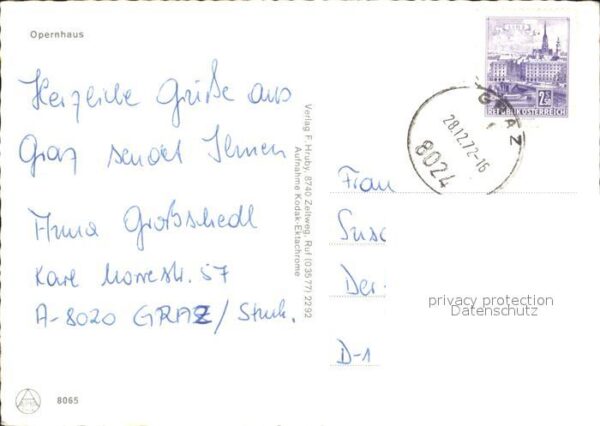 Opernhaus
Herzliche Grüße aus
Graz sendet Ihnen
Anna Großschedl
Karl Morrestr. 57
A-8020 GRAZ/Stmk.
8065
Verlag F. Hruby, 8740 Zeltweg, Ruf (03577) 2292
Aufnahme Kodak-Ektachrome
2.50
REPUBLIK ÖSTERREICH
GRAZ
28.12.72-16
8024
Frau
Suse
Der
D-1
privacy protection
Datenschutz